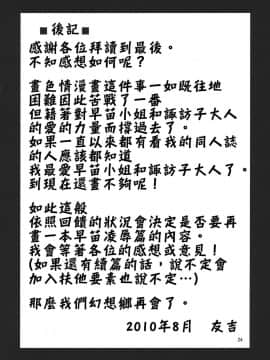 ■後記■
感謝各位拜讀到最後。
不知感想如何呢?
畫色情漫畫這件事一如既往地
困難因此苦戰了一番
但籍著對早苗小姐和諏訪子大人
的愛的力量而撐過去了。
如果一直以來都有看我的同人誌
的人應該都知道
我最愛早苗小姐和諏訪子大人了。
到現在還畫不夠呢!
如此這般
依照回饋的狀況會決定是否要再
畫一本早苗凌辱篇的內容。
我會等著各位的感想或意見!
(如果還有續篇的話,說不定會
加入扶他要素也說不定…)
那麼我們幻想鄉再會了。
2010年8月 友吉
24